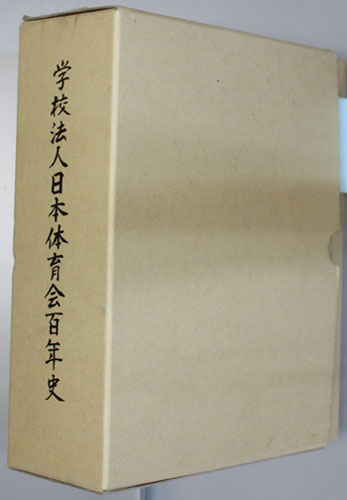 学校法人日本体育会百年史